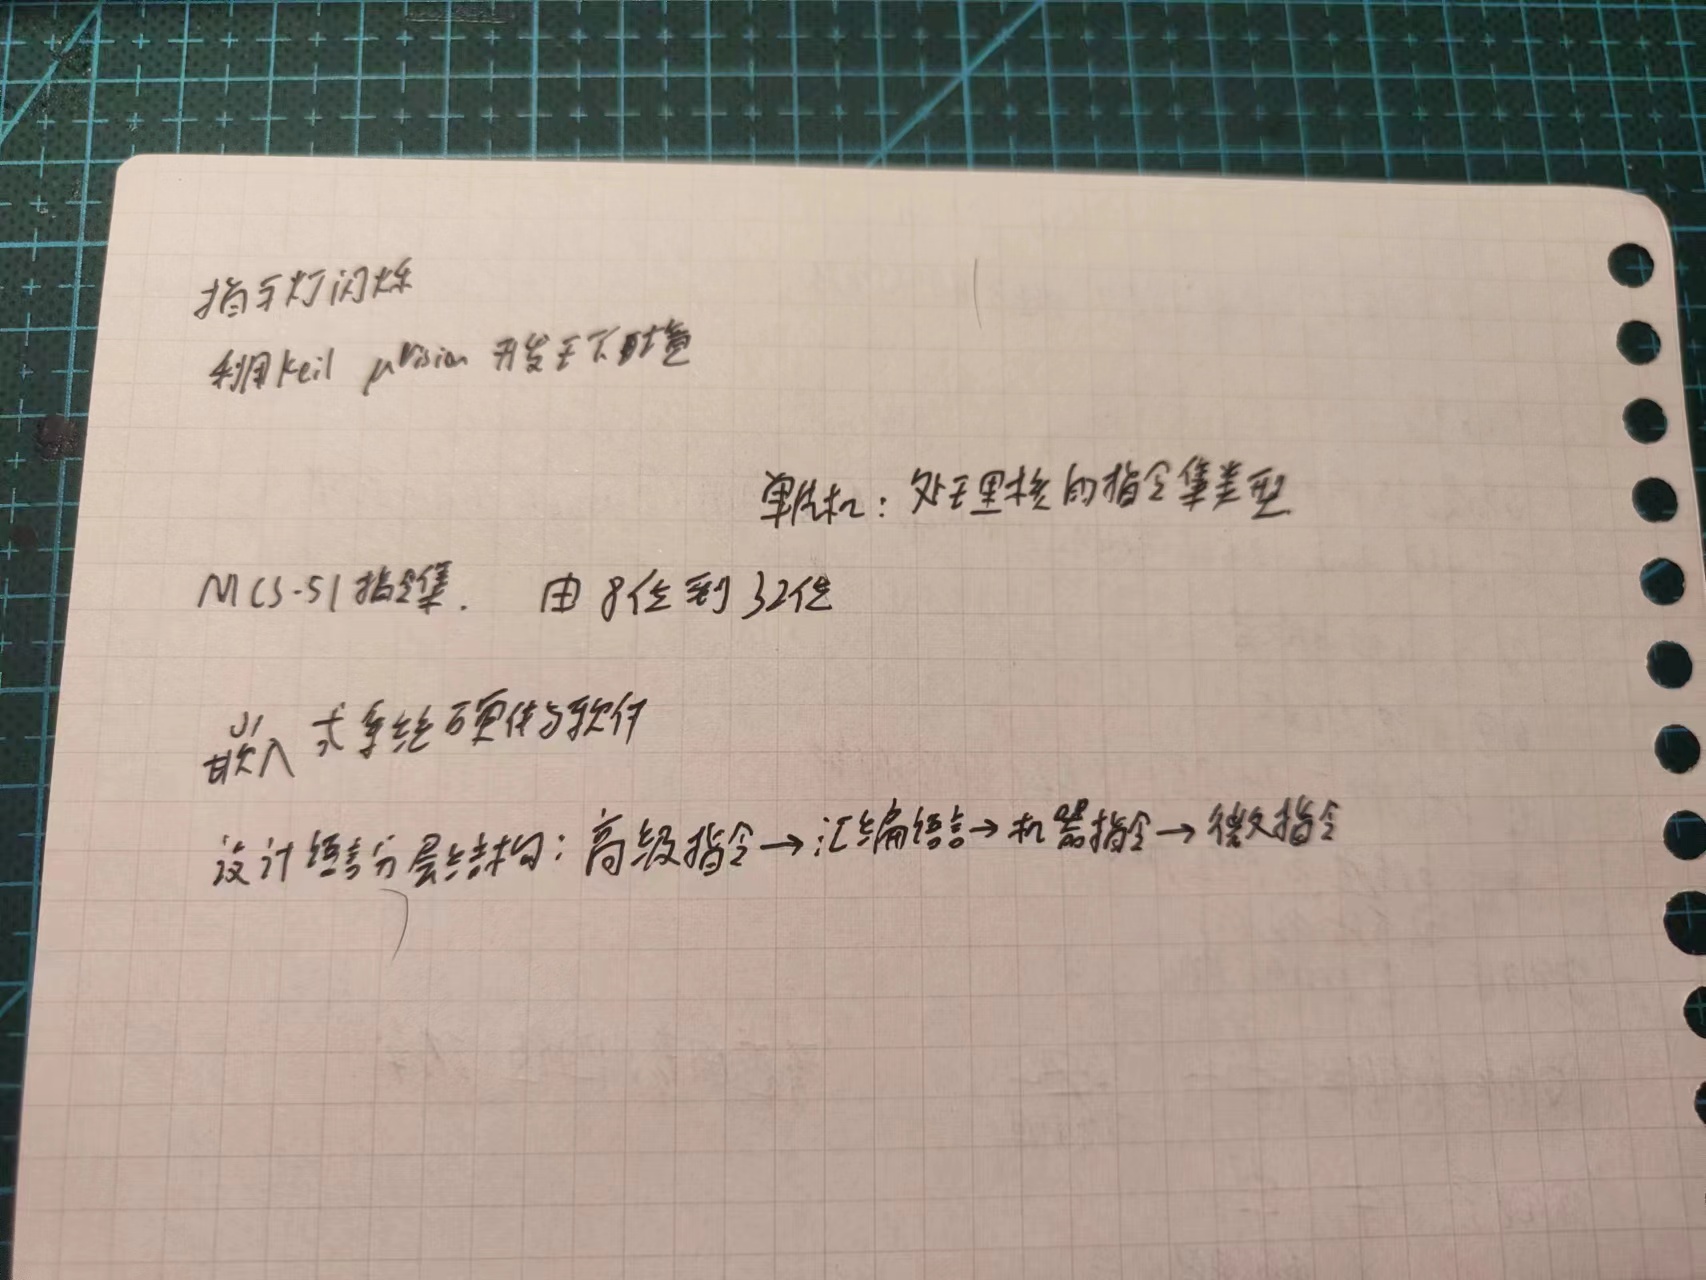 指示灯闪烁
利用Keil μVision 开发环境
单片机：处理核的指令集类型
MCS-51指令集. 由8位到32位
嵌入式系统硬件与软件
设计语言分层结构：高级指令→汇编语言→机器指令→微指令